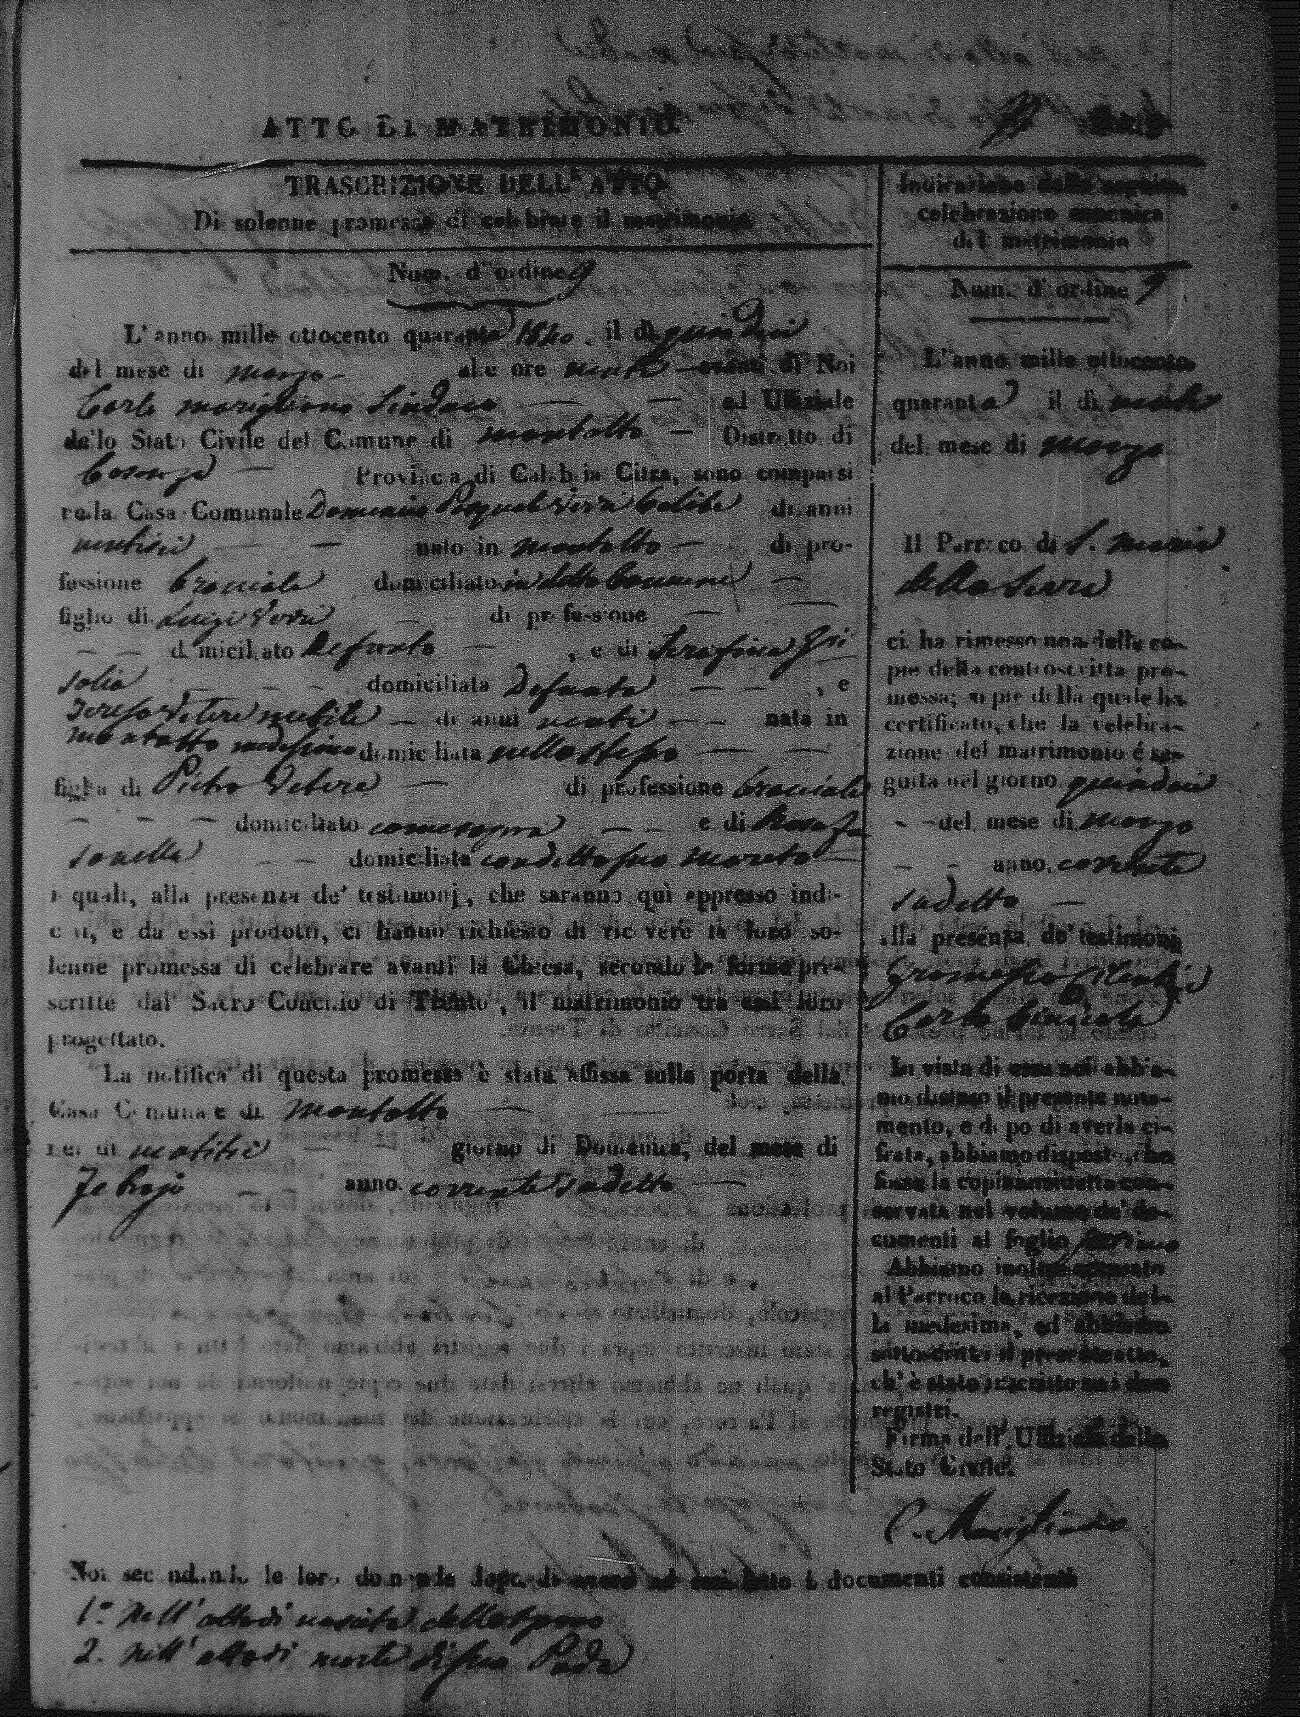 ATTO DI MATRIMONIO
TRASCRIZIONE DELL'ATTO
Di solenne promessa di celebrare il matrimonio
Num. d'ordine 9
L'anno mille ottocento quaranta 1840. il di quindici
del mese di marzo alle ore venti avanti di Noi
Carlo Marigliano Sindaco ed Uffiziale
dello Stato Civile del Comune di Montalto Distretto di
Cosenza Provincia di Calabria Citra, sono comparsi
nella Casa Comunale Domenico Pasquale Verri Celibe di anni
nato in Montalto di pro-
fessione bracciale domiciliato in detto Comune
figlio di Luigi Verri di professione
domiciliato Defunto , e di Serafina Gri
solia domiciliata Defunta , e
Teresa Vetere nubile di anni venti nata in
Montalto medesimo domiciliata nello stesso
figlia di Pietro Vetere di professione bracciale
domiciliato come sopra e di Rosa
domiciliata con detto suo marito
i quali, alla presenza de' testimonj, che saranno quì appresso indi-
cati, e da essi prodotti, ci hanno richiesto di ricevere la loro so-
lenne promessa di celebrare avanti la Chiesa, secondo le forme pre-
scritte dal Sacro Concilio di Trento, il matrimonio tra essi loro
progettato.
La notifica di questa promessa è stata affissa sulla porta della
Casa Comunale di Montalto
nel di ventitrè giorno di Domenica, del mese di
Febrajo anno corrente sudetto
Indicazione della seguita
celebrazione canonica
del matrimonio
Num. d'ordine 9
L'anno mille ottocento
quaranta il di venti
del mese di marzo
Il Parroco di S. Maria
della Serra
ci ha rimesso una delle co-
pie della controscritta pro-
messa; in piè della quale ha
certificato, che la celebra-
zione del matrimonio é se-
guita nel giorno quindici
del mese di marzo
anno corrente
sudetto
alla presenza de' testimonj
Carlo
In vista di essa noi abbia-
mo disteso il presente nota-
mento, e di po di averla ci-
frata, abbiamo disposto, che
fosse la copia anzidetta con-
servata nel volume de' do-
cumenti al foglio
Abbiamo inoltre accusato
al Parroco la ricezione del-
la medesima, ed abbiamo
sottoscritto il presente atto,
ch' è stato inscritto ne' due
registri.
Firma dell' Uffiziale dello
Stato Civile.
C. Marigliano
Noi secondando le loro domande dopo di avere ad essi letto i documenti consistenti
1.° Nell'atto di nascita dello sposo
2. nell'atto di morte di suo Padre